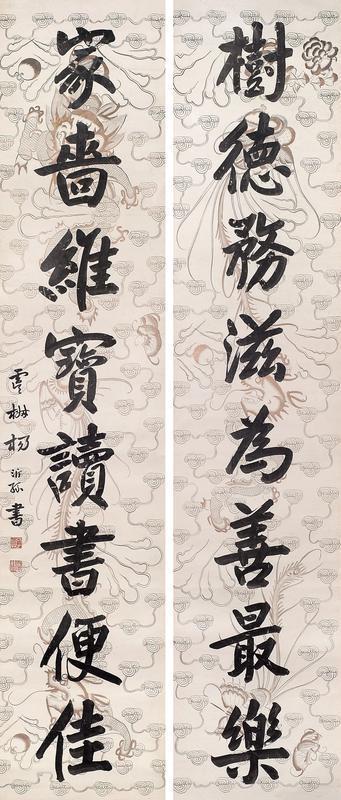 樹德務滋為善最樂
家嗇維寶讀書便佳
楊沂孫書